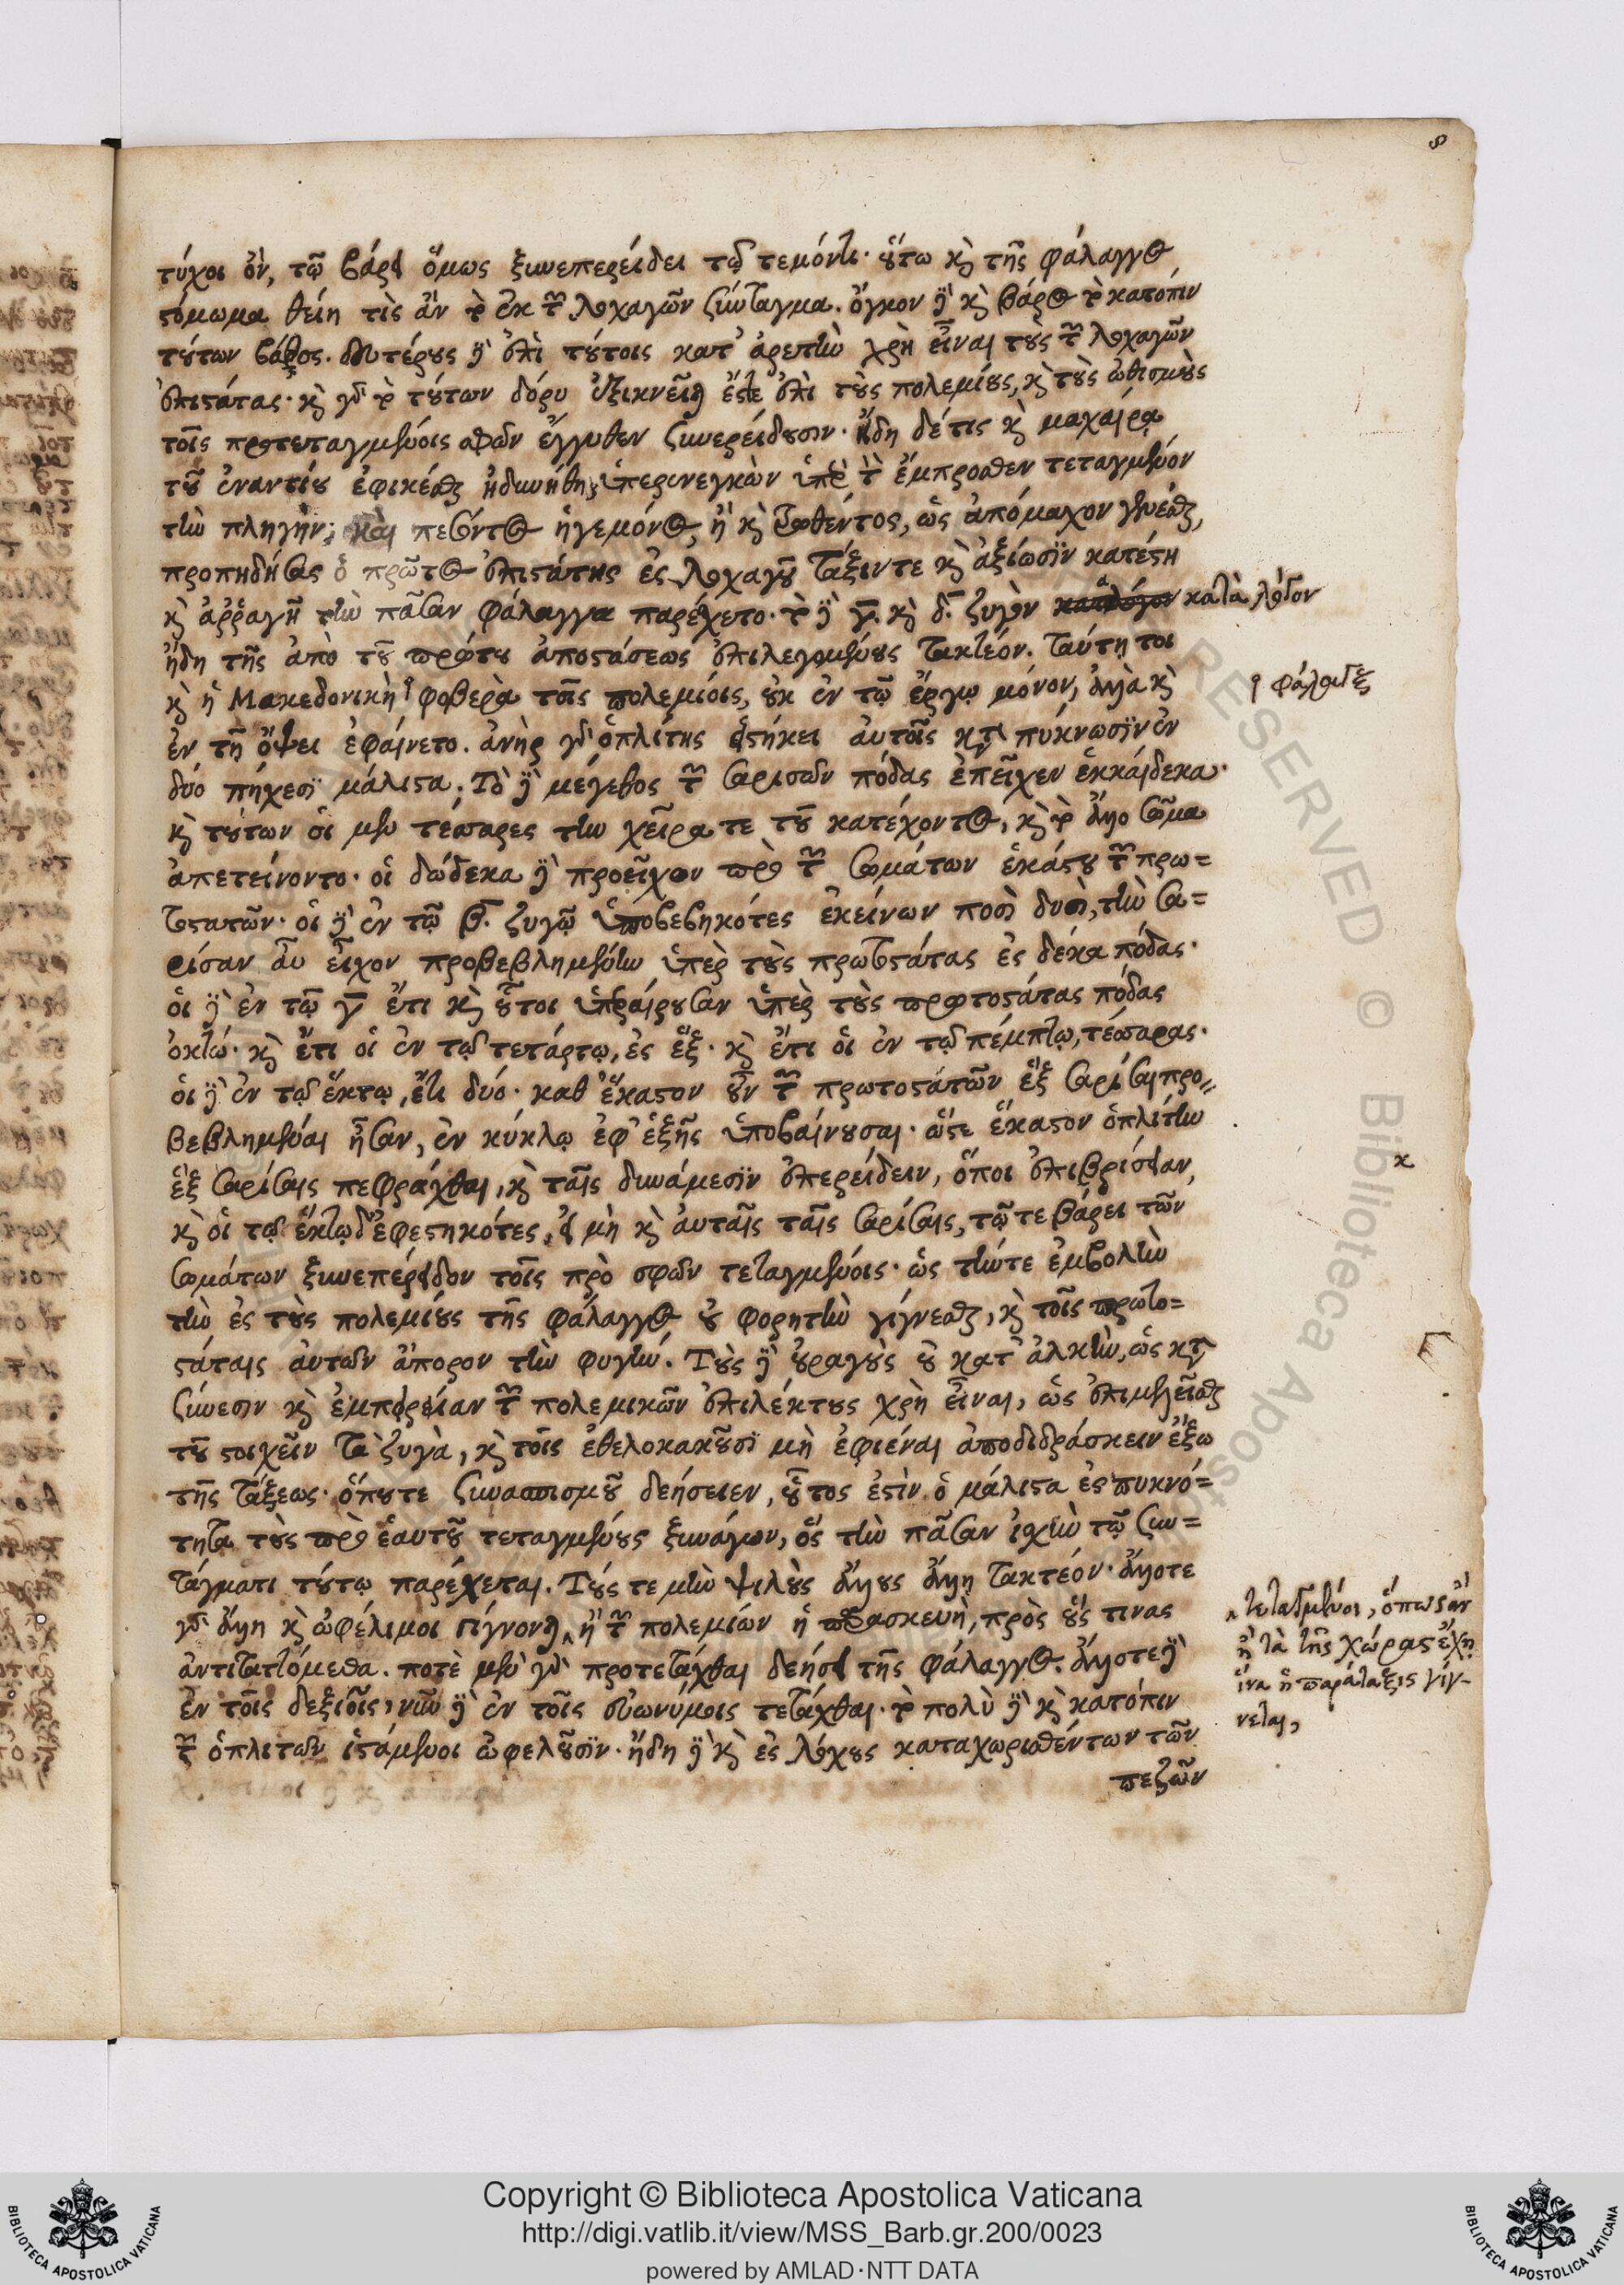 8
τύχοι ὂν, τῷ βάρει ὅμως ξυνεπερείδει τῷ τεμόντι· οὕτω καὶ τῆς φάλαγγος
στόμωμα θείη τὶς ἂν τὸ ἐκ τῶν λοχαγῶν σύνταγμα. ὄγκον δὲ καὶ βάρος τὸ κατόπιν
τούτων βάθος. δευτέρους δὲ ἐπὶ τούτοις κατ' ἀρετὴν χρὴ εἶναι τοὺς τῶν λοχαγῶν
ἐπιστάτας· καὶ γὰρ τὸ τούτων δόρυ ἐξικνεῖται ἔστε ἐπὶ τοὺς πολεμίους, καὶ τοὺς ὠθισμοὺς
τοῖς προτεταγμένοις σφῶν ἔγγυθεν συνερείδουσιν. ἤδη δέ τις καὶ μαχαίρᾳ
τοῦ ἐναντίου ἐφικέσθαι ἠδυνήθη, ὑπερενεγκὼν ὑπὲρ τὸν ἔμπροσθεν τεταγμένον
τὴν πληγήν; καὶ πεσόντος ἡγεμόνος, ἢ καὶ τρωθέντος, ὡς ἀπόμαχον γενέσθαι,
προπηδήσας ὁ πρῶτος ἐπιστάτης ἐς λοχαγοῦ τάξιν τε καὶ ἀξίωσιν κατέστη
καὶ ἀῤῥαγῆ τὴν πᾶσαν φάλαγγα παρέχετο. τὸ δὲ γ. καὶ δ. ζυγὸν κατὰ λόγον
ἤδη τῆς ἀπὸ τοῦ πρώτου ἀποστάσεως ἐπιλεγομένους τακτέον. ταύτῃ τοι
καὶ ἡ Μακεδονικὴ φοβερὰ τοῖς πολεμίοις, οὐκ ἐν τῷ ἔργῳ μόνον, ἀλλὰ καὶ
φάλαγξ
ἐν τῇ ὄψει ἐφαίνετο. ἀνὴρ γὰρ ὁπλίτης εἱστήκει αὐτοῖς κατὰ πύκνωσιν ἐν
δύο πήχεσι μάλιστα. Τὸ δὲ μέγεθος τῶν σαρισῶν πόδας ἐπεῖχεν ἑκκαίδεκα.
καὶ τούτων οἱ μὲν τέσσαρες τὴν χεῖρα τε τοῦ κατέχοντος, καὶ τὸ ἄλλο σῶμα
ἀπετείνοντο. οἱ δώδεκα δὲ προεῖχον πρὸ τῶν σωμάτων ἑκάστου τῶν πρω=
τοστατῶν· οἱ δὲ ἐν τῷ β. ζυγῷ ὑποβεβηκότες ἐκείνων ποσὶ δυσὶ, τὴν σα=
ρίσαν αὖ εἶχον προβεβλημένην ὑπὲρ τοὺς πρωτοστάτας ἐς δέκα πόδας.
οἱ δὲ ἐν τῷ γ ἔτι καὶ οὗτοι ὑπεραίρουσαν ὑπὲρ τοὺς πρωτοστάτας πόδας
ὀκτώ. καὶ ἔτι οἱ ἐν τῷ τετάρτῳ, ἐς ἕξ. καὶ ἔτι οἱ ἐν τῷ πέμπτῳ, τέσσαρας.
οἱ δὲ ἐν τῷ ἕκτῳ, ἔτι δύο. καθ' ἕκαστον οὖν τῶν πρωτοστατῶν ἕξ σαρίσαι προ=
βεβλημέναι ἦσαν, ἐν κύκλῳ ἐφ' ἑξῆς ὑποβαίνουσαι. ὥστε ἕκαστον ὁπλίτην
ἕξ σαρίσαις πεφράχθαι, καὶ ταῖς δυνάμεσιν ἐπερείδειν, ὅποι ἐπιβρίσειαν,
κ
καὶ οἱ τῷ ἕκτῳ δ' ἐφεστηκότες, εἰ μὴ καὶ αὐταῖς ταῖς σαρίσαις, τῷ τε βάρει τῶν
σωμάτων ξυνεπέρειδον τοῖς πρὸ σφῶν τεταγμένοις. ὡς τήν τε ἐμβολὴν
τὴν ἐς τοὺς πολεμίους τῆς φάλαγγος οὐ φορητὴν γίγνεσθαι, καὶ τοῖς πρωτο=
στάταις αὐτῶν ἄπορον τὴν φυγήν. Τοὺς δὲ οὐραγοὺς οὐ κατ' ἀλκὴν, ὡς κατὰ
ξύνεσιν καὶ ἐμπειρείαν τῶν πολεμικῶν ἐπιλέκτους χρὴ εἶναι, ὡς ἐπιμελεῖσθαι
τοῦ στοιχεῖν τὰ ζυγὰ, καὶ τοῖς ἐθελοκακοῦσι μὴ ἐφιέναι ἀποδιδράσκειν ἔξω
τῆς τάξεως. ὅπου τε συνασπισμοῦ δεήσειεν, οὗτος ἐστὶν ὁ μάλιστα ἐς πυκνό=
τητα τοὺς πρὸ ἑαυτοῦ τεταγμένους ξυνάγων, ὅς τὴν πᾶσαν ἰσχὺν τῷ συν=
τάγματι τούτῳ παρέχεται. Τούς τε μὴν ψιλοὺς ἄλλους ἄλλῃ τακτέον. ἄλλοτε
γὰρ ἄλλῃ καὶ ὠφέλιμοι γίγνονται, ἢ τῶν πολεμίων ἡ παρασκευὴ, πρὸς οὕς τινας
τεταγμένοι, ὅπως ἂν
ἢ τὰ τῆς χώρας ἔχῃ
ἵνα ἡ παράταξις γίγ-
νεται,
ἀντιταττόμεθα. ποτὲ μὲν γὰρ προτετάχθαι δεήσει τῆς φάλαγγος. ἄλλοτε δὲ
ἐν τοῖς δεξιοῖς, νῦν δὲ ἐν τοῖς εὐωνύμοις τετάχθαι. τὸ πολὺ δὲ καὶ κατόπιν
τῶν ὁπλιτῶν ἱστάμενοι ὠφελοῦσιν. ἤδη δὲ καὶ ἐς λόχους καταχωρισθέντων τῶν
πεζῶν
RESERVED © Biblioteca Apostolica
Copyright © Biblioteca Apostolica Vaticana
http://digi.vatlib.it/view/MSS_Barb.gr.200/0023
powered by AMLAD·NTT DATA
BIBLIOTECA APOSTOLICA VATICANA
BIBLIOTECA APOSTOLICA VATICANA